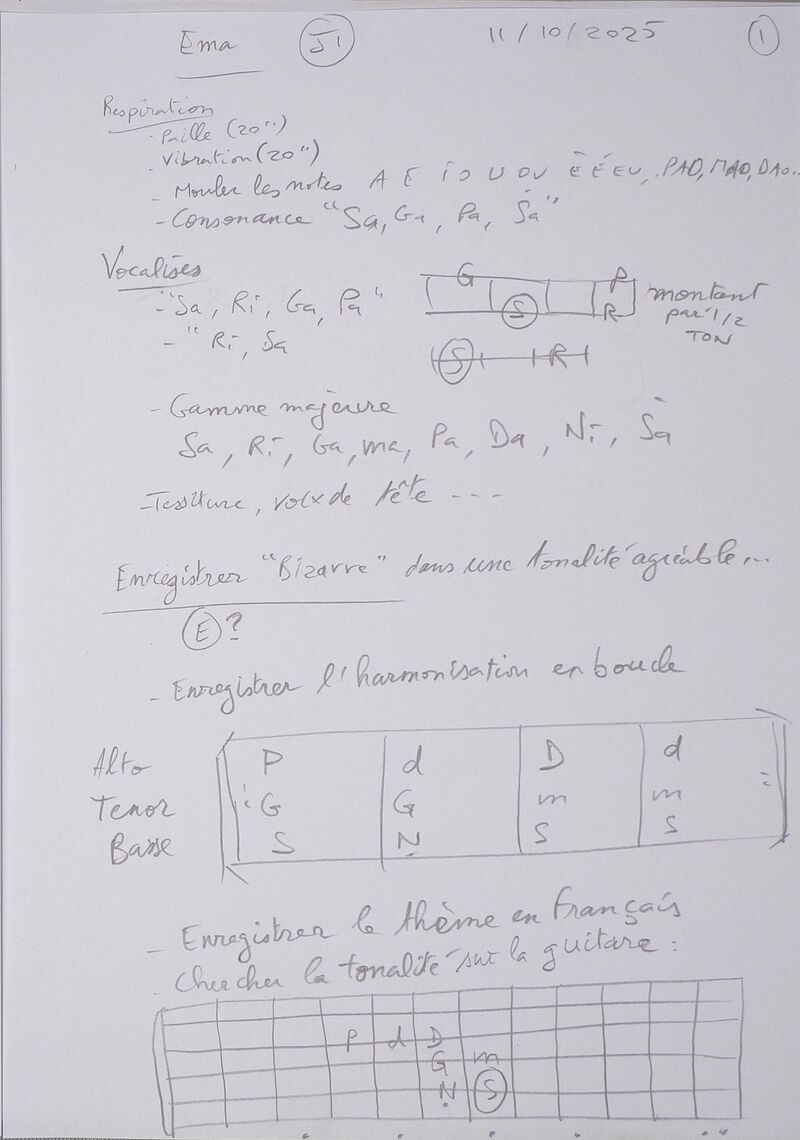 Ema J1 11/10/2025 1
Respiration
- Paille (20")
- Vibration (20")
- Mouler les notes A E I O U OU È É EU, PAO, MAO, DAO..
- Consonance "Sa, Ga, Pa, Ṡa"
Vocalises
- "Sa, Ri, Ga, Pa"
G P
S R
montant
par 1/2
TON
- "Ri, Sa
S R
- Gamme majeure
Sa, Ri, Ga, ma, Pa, Da, Ni, Ṡa
- Tessiture, voix de tête ---
Enregistrer "Bizarre" dans une tonalité agréable...
E ?
- Enregistrer l'harmonisation en boucle
Alto P d D d
Tenor : G G m m :
Basse S Ṇ S S
- Enregistrer le thème en français
- Chercher la tonalité sur la guitare :
P d D
G m
Ṇ S